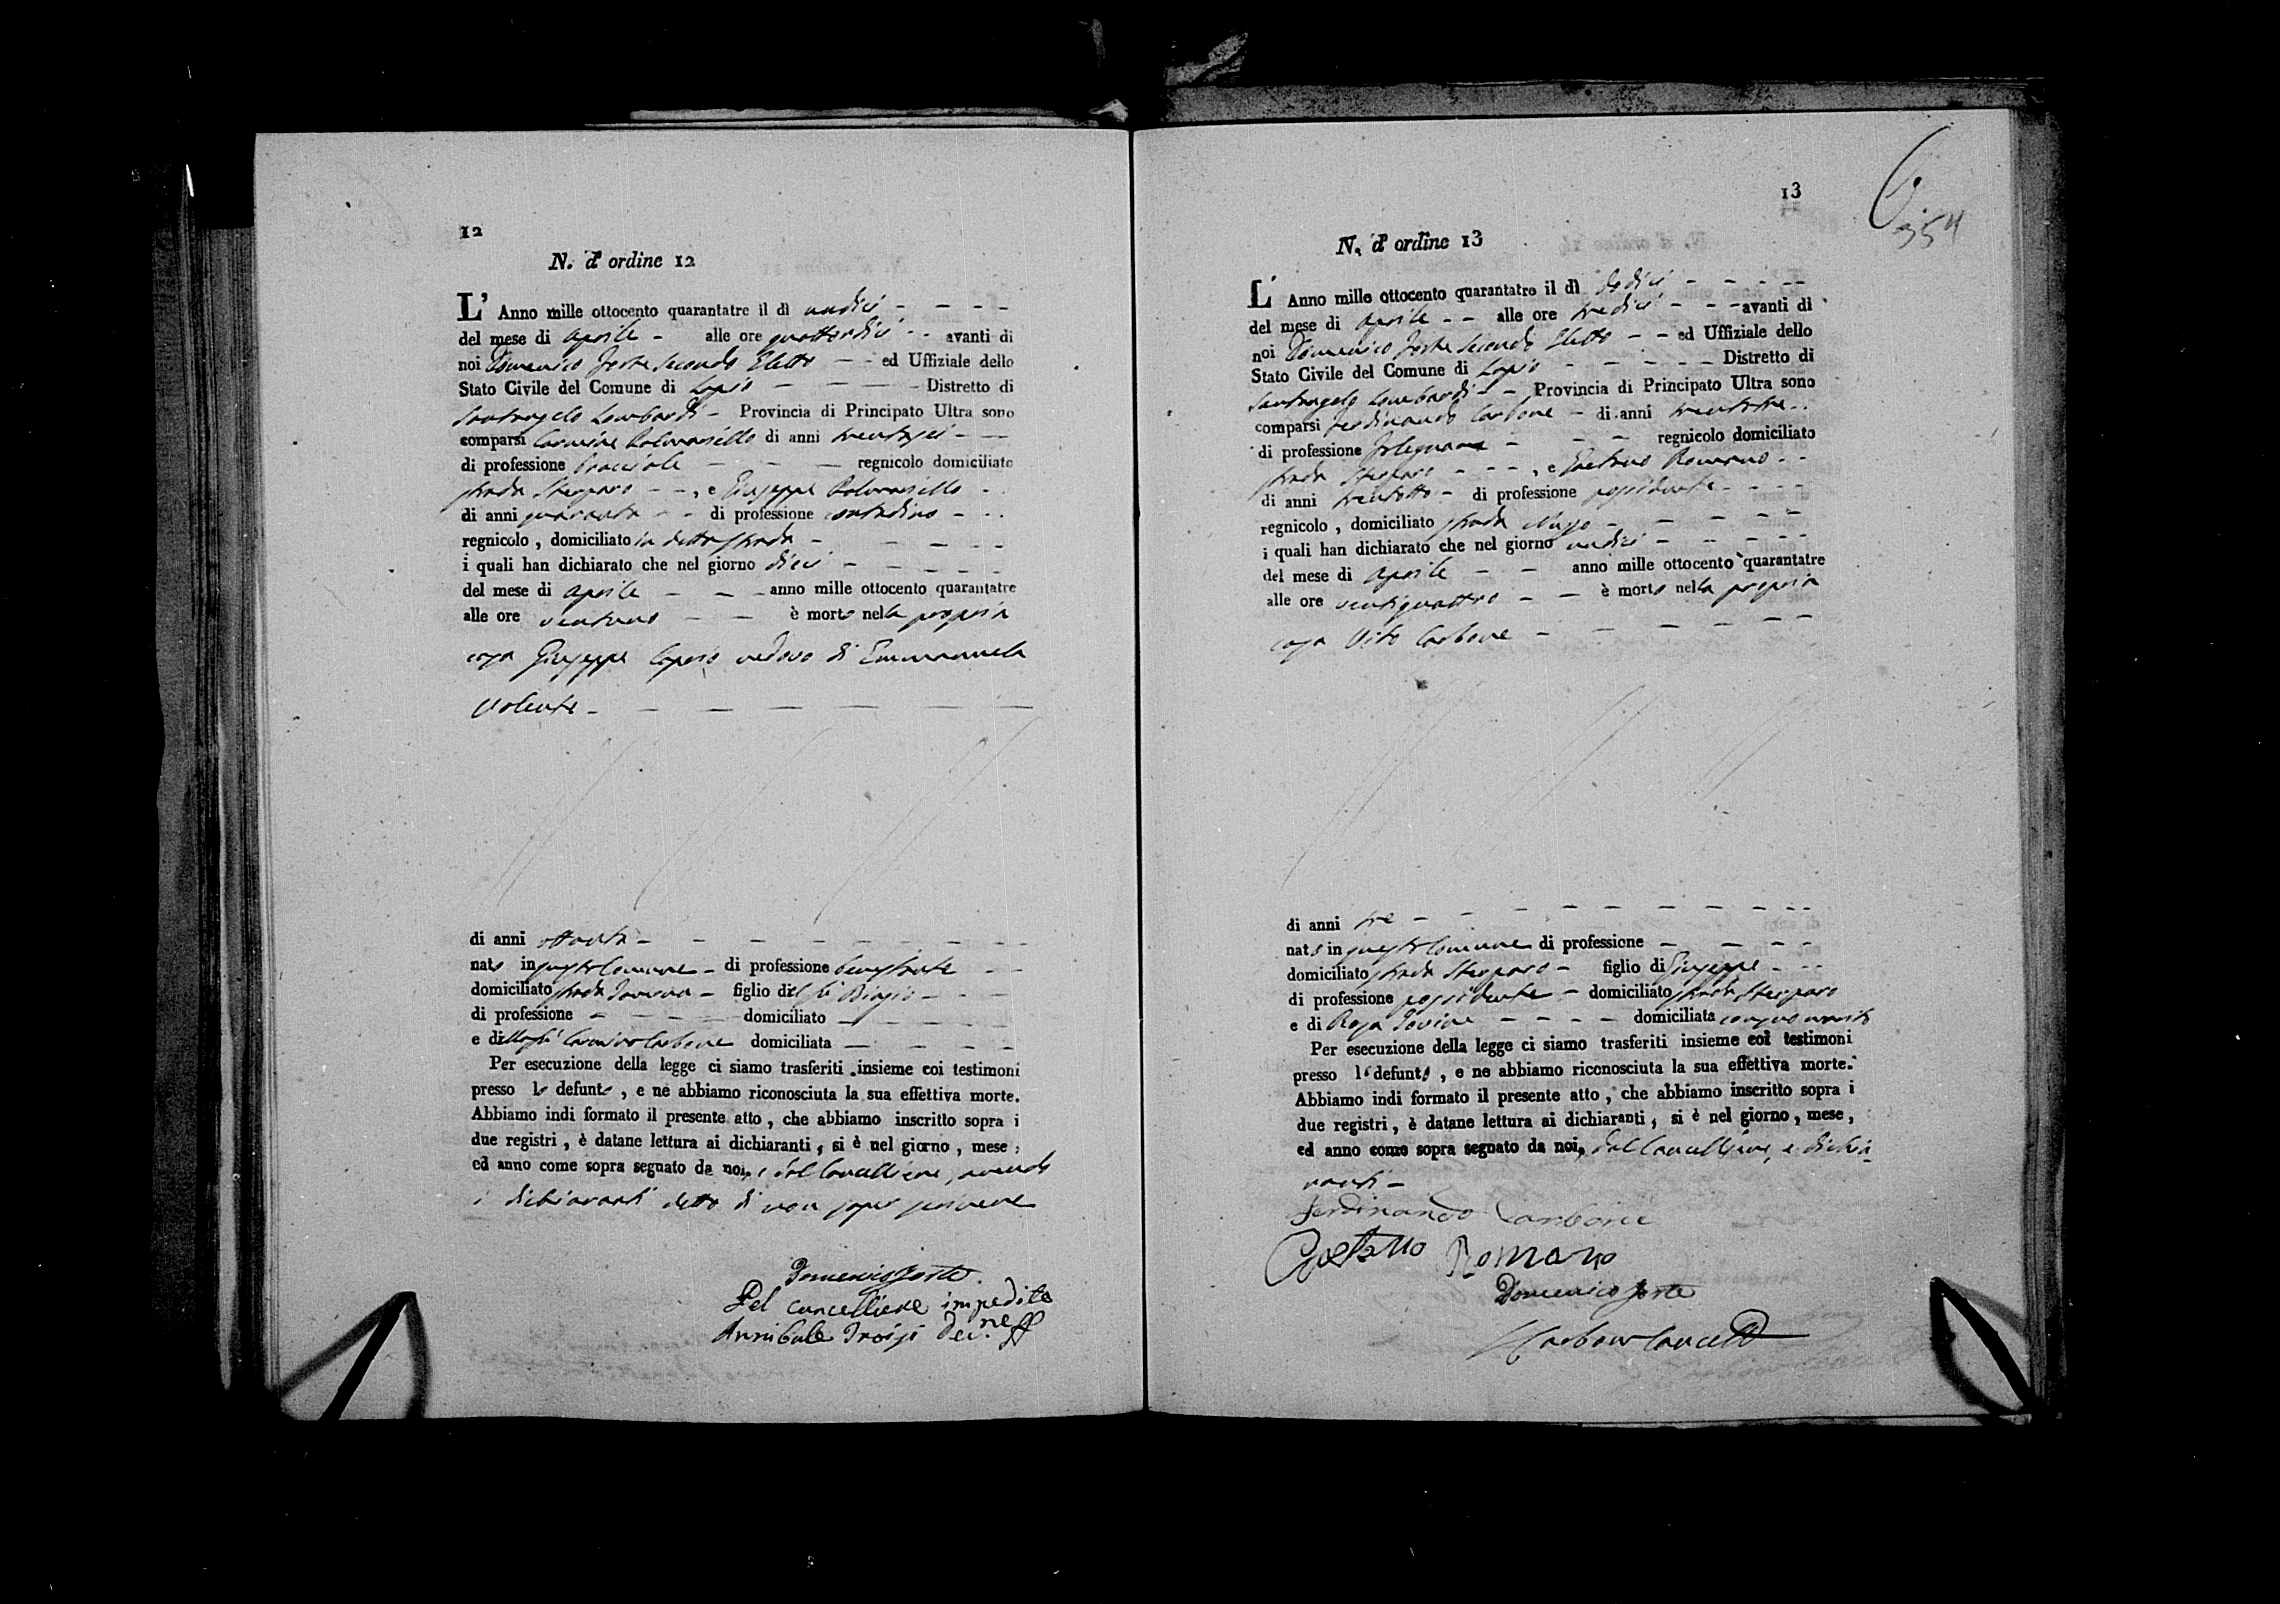 12
N. d'ordine 12
L'Anno mille ottocento quarantatre il dì undici
del mese di Aprile alle ore quattordici avanti di
noi Domenico Forte Secondo Eletto ed Uffiziale dello
Stato Civile del Comune di Lapio Distretto di
Santangelo Lombardi Provincia di Principato Ultra sono
comparsi Carmine Colucciello di anni trentasei
di professione bracciale regnicolo domiciliato
strada, e Giuseppe
di anni quaranta di professione contadino
regnicolo, domiciliato in detta strada
i quali han dichiarato che nel giorno dieci
del mese di Aprile anno mille ottocento quarantatre
alle ore ventuno è morto nella propria
casa Giuseppe Caposso vedovo di Emmanuela
Valente
di anni ottanta
nato in questo Comune di professione
domiciliato strada figlio del fu Biagio
di professione domiciliato
e di Carbone domiciliata
Per esecuzione della legge ci siamo trasferiti insieme coi testimoni
presso lo defunto, e ne abbiamo riconosciuta la sua effettiva morte.
Abbiamo indi formato il presente atto, che abbiamo inscritto sopra i
due registri, è datane lettura ai dichiaranti, si è nel giorno, mese,
ed anno come sopra segnato da noi, e dal Cancelliere, avendo
i dichiaranti detto di non saper scrivere
Domenico Forte
Pel cancelliere impedito
Annibale Troisi
13
354
N. d'ordine 13
L'Anno mille ottocento quarantatre il dì dodici
del mese di Aprile alle ore tredici avanti di
noi Domenico Forte Secondo Eletto ed Uffiziale dello
Stato Civile del Comune di Lapio Distretto di
Santangelo Lombardi Provincia di Principato Ultra sono
comparsi Ferdinando Carbone di anni trentatre
di professione Falegname regnicolo domiciliato
strada, e Gaetano Romano
di anni trentotto di professione possidente
regnicolo, domiciliato strada
i quali han dichiarato che nel giorno undici
del mese di Aprile anno mille ottocento quarantatre
alle ore ventiquattro è morto nella propria
casa Vito Carbone
di anni tre
nato in questo Comune di professione
domiciliato strada figlio di Giuseppe
di professione possidente domiciliato strada
e di Rosa Iovine domiciliata con suo marito
Per esecuzione della legge ci siamo trasferiti insieme coi testimoni
presso lo defunto, e ne abbiamo riconosciuta la sua effettiva morte.
Abbiamo indi formato il presente atto, che abbiamo inscritto sopra i
due registri, è datane lettura ai dichiaranti, si è nel giorno, mese,
ed anno come sopra segnato da noi, dal Cancelliere, e dichia-
ranti
Ferdinando Carbone
Gaetano Romano
Domenico Forte
Carbone Cancell